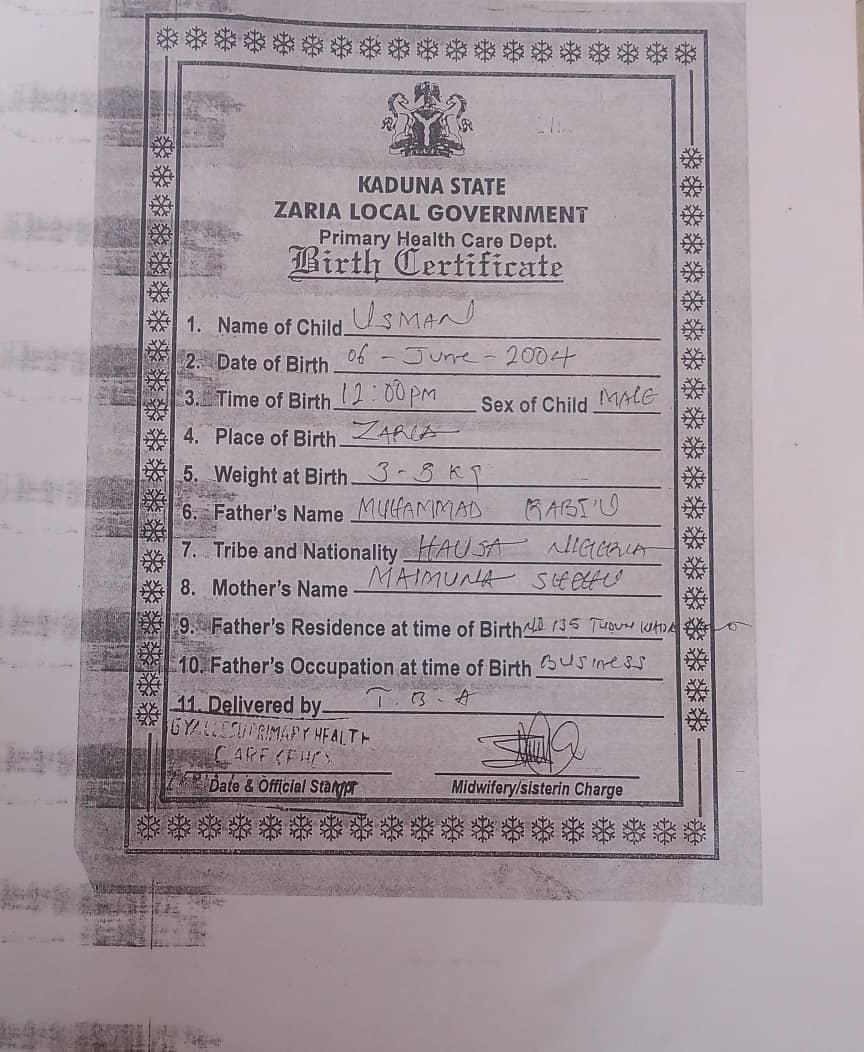 KADUNA STATE
ZARIA LOCAL GOVERNMENT
Primary Health Care Dept.
Birth Certificate
1. Name of Child USMAN
2. Date of Birth 06 - June - 2004
3. Time of Birth 12:00pm Sex of Child MALE
4. Place of Birth ZARIA
5. Weight at Birth 3-8 Kg
6. Father's Name MUHAMMAD RABI'U
7. Tribe and Nationality HAUSA NIGERIA
8. Mother's Name MAIMUNA SHEHU
9. Father's Residence at time of Birth NO 135
10. Father's Occupation at time of Birth Business
11. Delivered by T.B.A
GYALLESU PRIMARY HEALTH
CARE (PHC)
Date & Official Stamp Midwifery/sisterin Charge